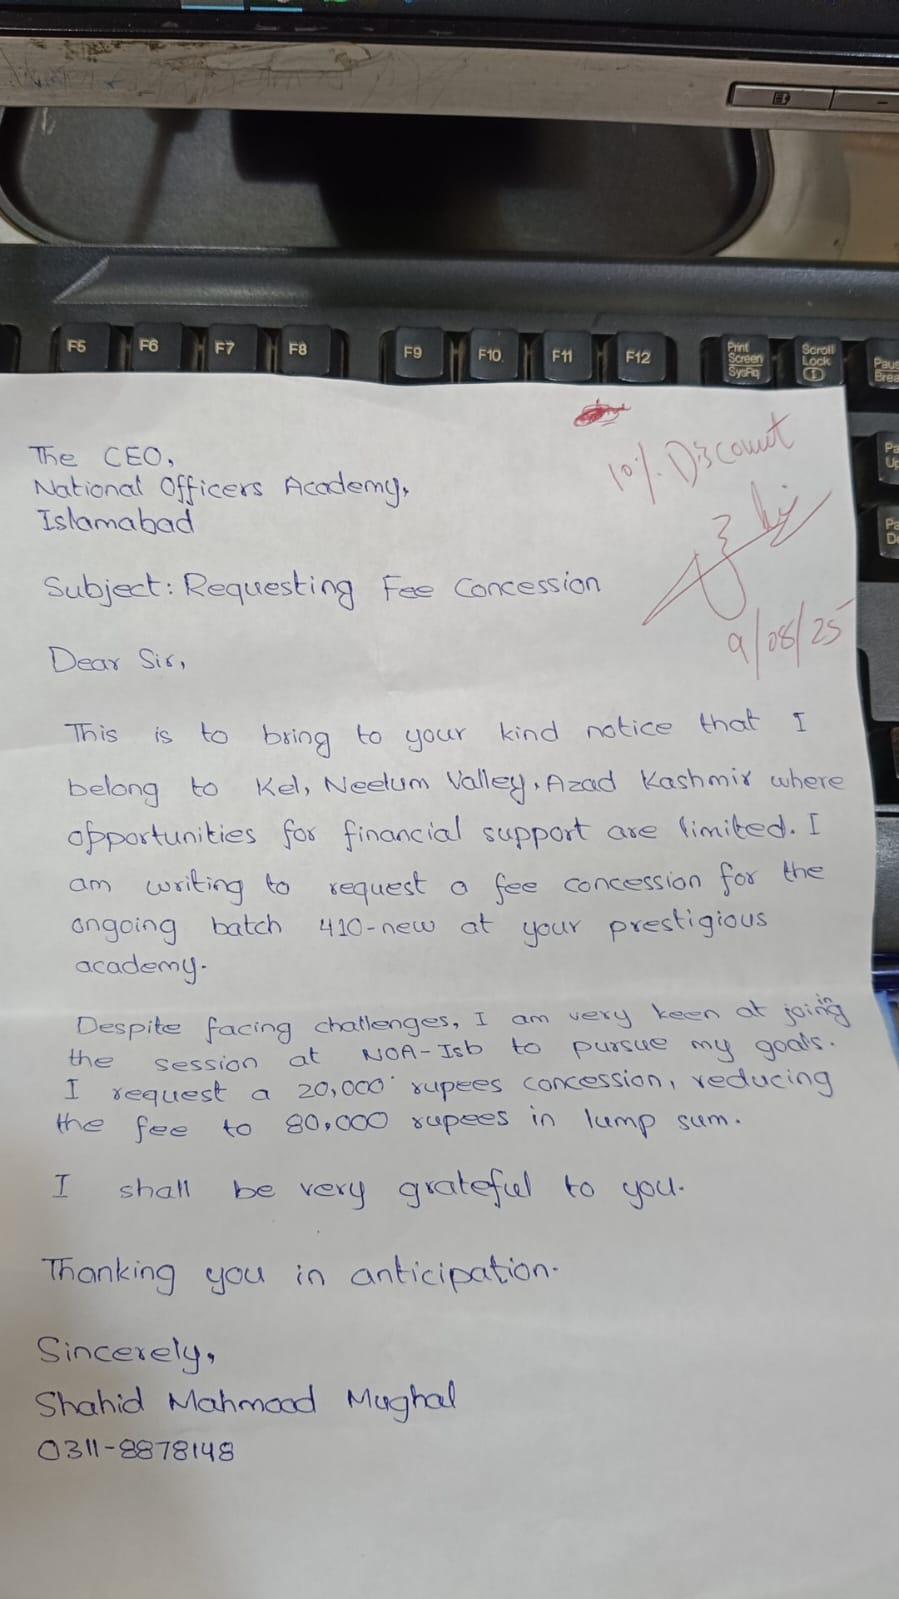 F5 F6 F7 F8 F9 F10 F11 F12 Print Screen SysRq Scroll Lock
10% Discount
9/08/25
The CEO,
National Officers Academy,
Islamabad
Subject: Requesting Fee Concession
Dear Sir,
This is to bring to your kind notice that I
belong to Kel, Neelum Valley, Azad Kashmir where
opportunities for financial support are limited. I
am writing to request a fee concession for the
ongoing batch 410-new at your prestigious
academy.
Despite facing challenges, I am very keen at joining
the session at NOA-Isb to pursue my goals.
I request a 20,000 rupees concession, reducing
the fee to 80,000 rupees in lump sum.
I shall be very grateful to you.
Thanking you in anticipation.
Sincerely,
Shahid Mahmood Mughal
0311-8878148